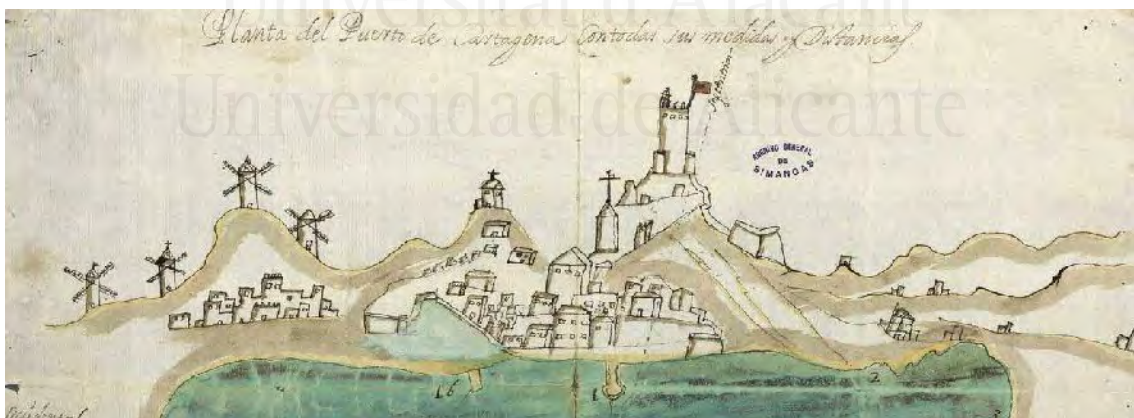 Universitat d'Alacant
Planta del Puerto de Cartagena Contodas sus medidas y Distancias
Universidad de Alicante
ARCHIVO GENERAL
DE
SIMANCAS
16
1
2
3